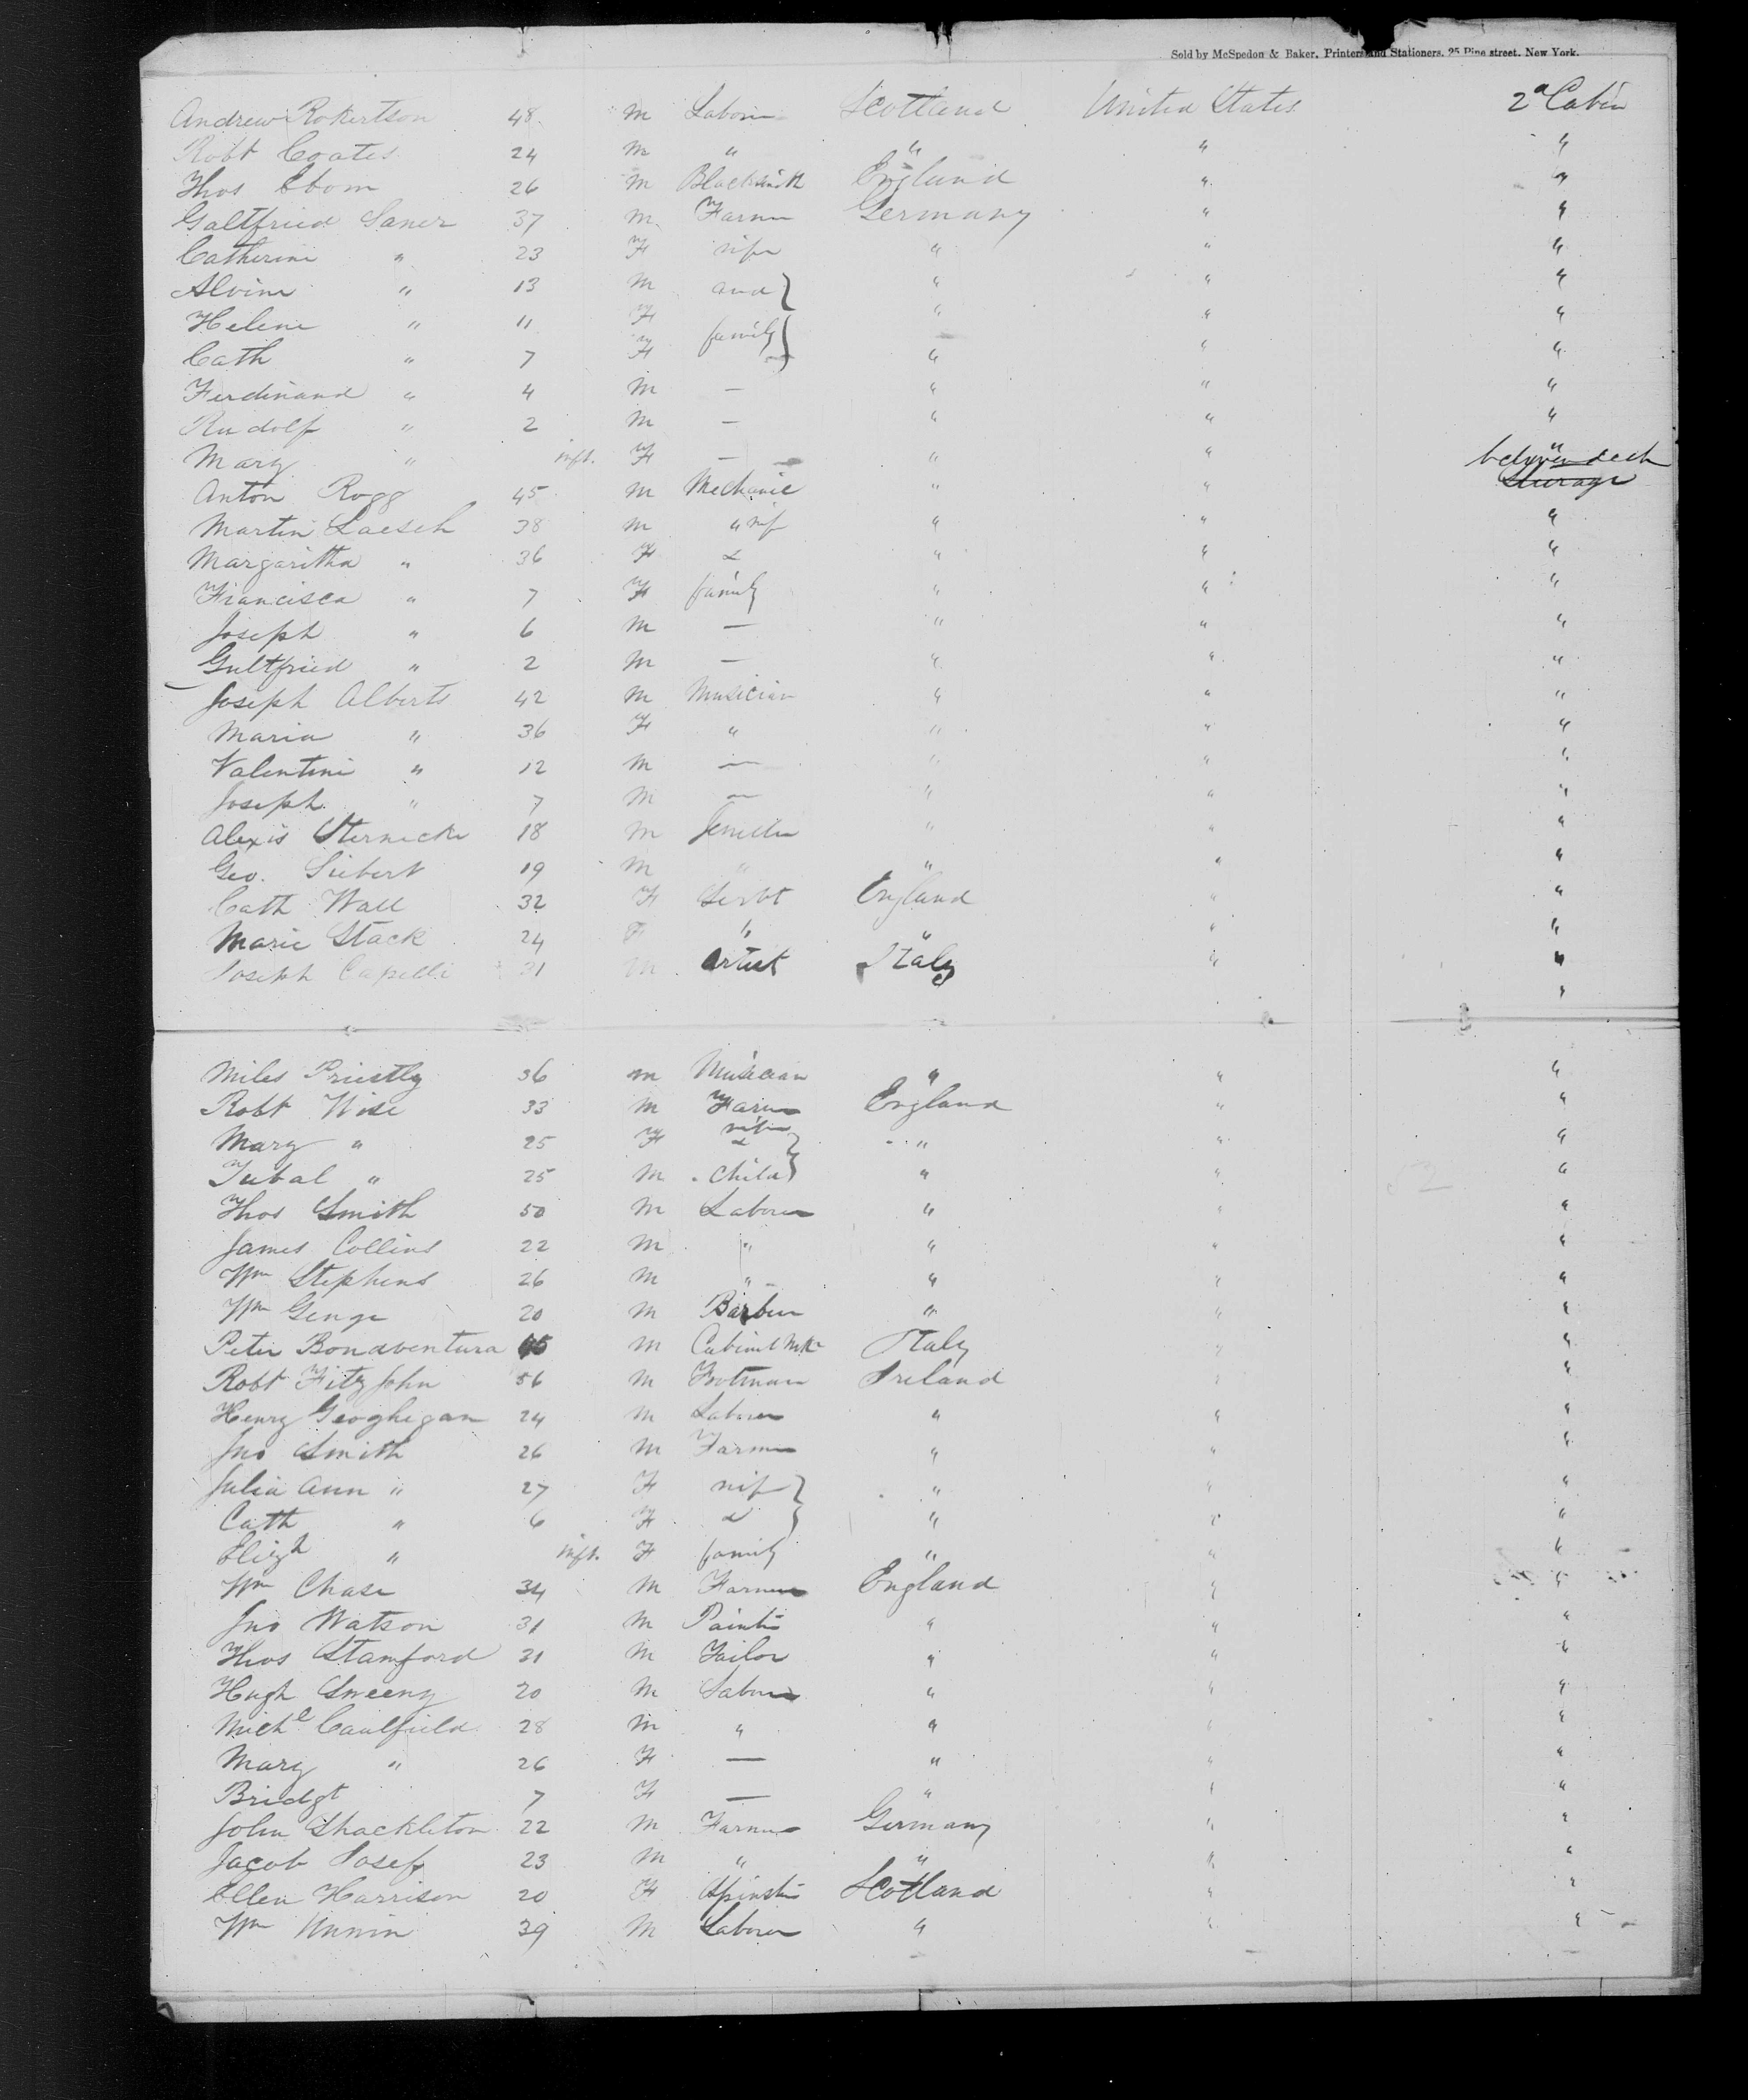 Sold by McSpedon & Baker, Printers and Stationers, 25 Pine street, New York.
Andrew Robertson 48 m Laborer Scotland United States 2d Cabin
Robt Coates 24 m " " " "
Thos 26 m Blacksmith England " "
Galtfried Saner 37 m Farmer Germany " "
Catherine " 23 F wife " " "
Alvine " 13 m and } " " "
Helene " 11 F family } " " "
Cath " 7 F " " "
Ferdinand " 4 m — " " "
Rudolf " 2 m — " " "
Mary " inft. F — " " "
between deck
Anton Rogg 45 m Mechanic " " Steerage
Martin Laesch 38 m " wife " " "
Margaritha " 36 F & " " "
Francisca " 7 F family " " "
Joseph " 6 m — " " "
Gultfried " 2 m — " " "
Joseph Alberts 42 m Musician " " "
Maria " 36 F " " " "
Valentine " 12 m — " " "
Joseph " 7 m — " " "
Alexis Sternecke 18 m Jeweller " " "
Geo. Siebert 19 m " " " "
Cath Wall 32 F Servt England " "
Marie Stack 24 F " " " "
Joseph Capelli 31 m Artist Italy " "
"
Miles Priestly 36 m Musician " " "
Robt Wise 33 m Farmer England " "
Mary " 25 F wife & } " " "
Tubal " 25 m child } " " "
Thos Smith 50 m Laborer " " "
James Collins 22 m " " " "
Wm Stephens 26 m " " " "
Wm Genge 20 m Barber " " "
Peter Bonaventura 45 m Cabinet Mkr Italy " "
Robt Fitz John 56 m Footman Ireland " "
Henry Geoghegan 24 m Laborer " " "
Jno Smith 26 m Farmer " " "
Julia Ann " 27 F wife } " " "
Cath " 6 F & } " " "
Elizh " inft. F family " " "
Wm Chase 34 m Farmer England " "
Jno Watson 31 m Painter " " "
Thos Stamford 31 m Tailor " " "
Hugh Sweeny 20 m Laborer " " "
Michl Caulfield 28 m " " " "
Mary " 26 F — " " "
Bridgt 7 F — " " "
John Shackleton 22 m Farmer Germany " "
Jacob Josef 23 m " " " "
Ellen Harrison 20 F Spinster Scotland " "
Wm 39 m Laborer " " "